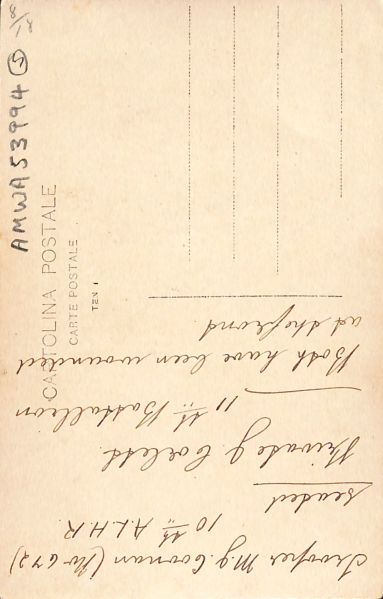 8/18
AMWA53994 5
CARTOLINA POSTALE
CARTE POSTALE
Trooper M.J. Coonan (No 672)
10th A.L.H.R.
seated
Private J.
11th Battalion
Both have been wounded
at the front.